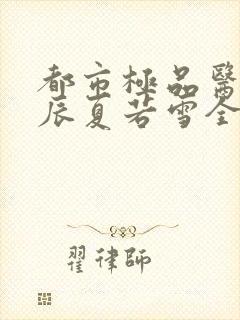 都市極品醫
辰夏若雪全
翟律師